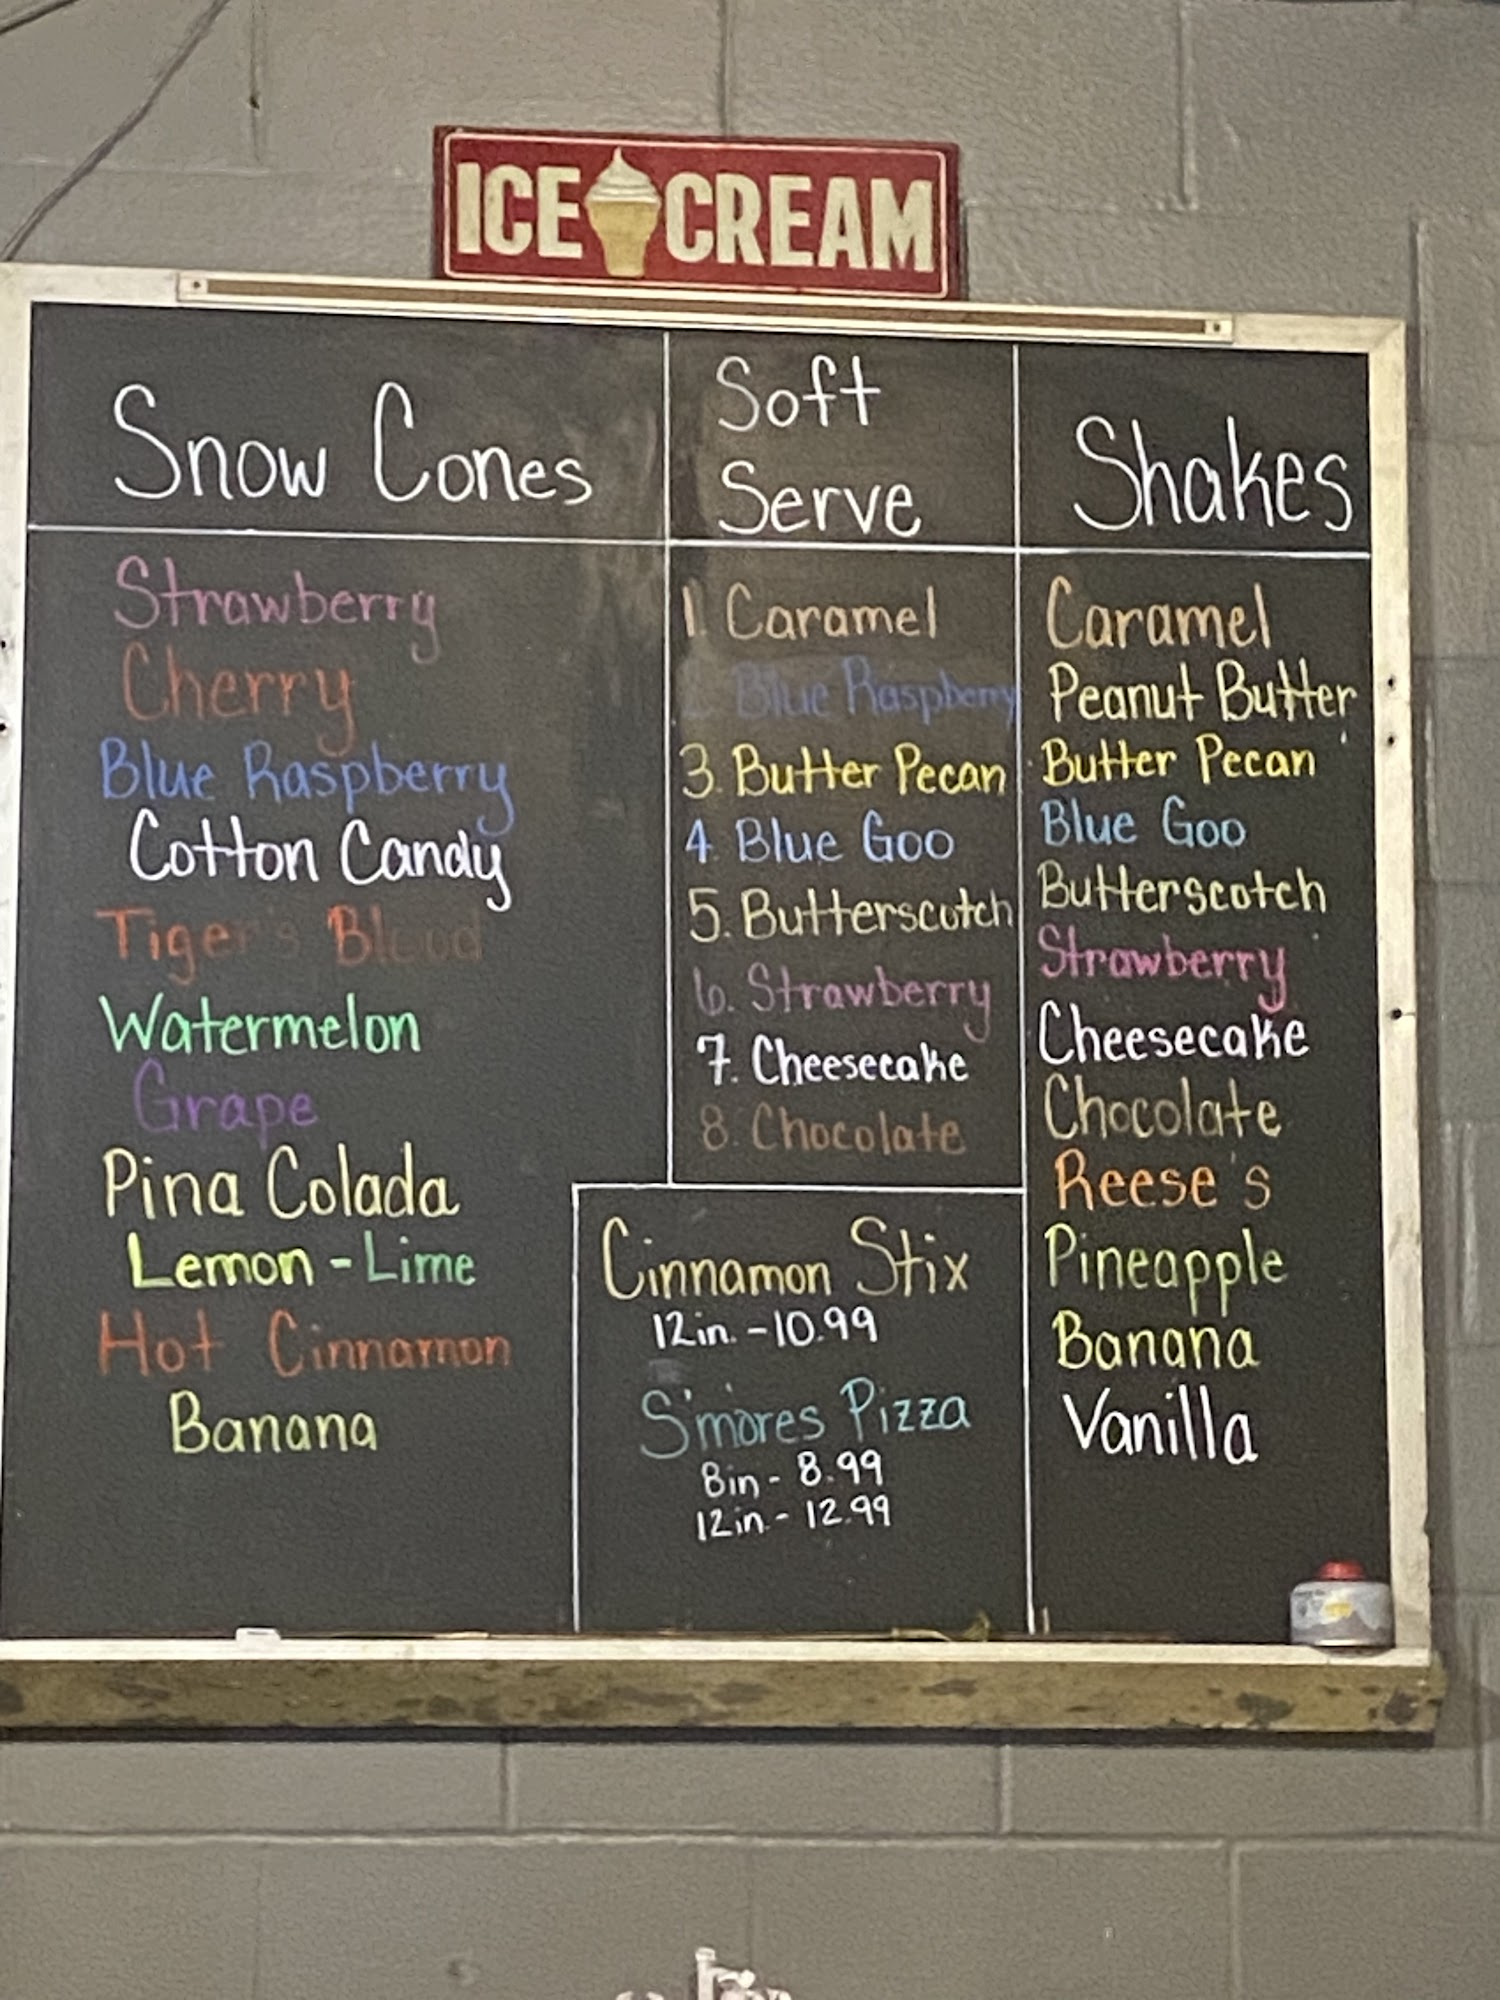 ICE CREAM
Snow Cones
Strawberry
Cherry
Blue Raspberry
Cotton Candy
Tiger's Blood
Watermelon
Grape
Pina Colada
Lemon - Lime
Hot Cinnamon
Banana
Soft
Serve
1. Caramel
2. Blue Raspberry
3. Butter Pecan
4. Blue Goo
5. Butterscotch
6. Strawberry
7. Cheesecake
8. Chocolate
Cinnamon Stix
12in. - 10.99
S'mores Pizza
8in - 8.99
12in. - 12.99
Shakes
Caramel
Peanut Butter
Butter Pecan
Blue Goo
Butterscotch
Strawberry
Cheesecake
Chocolate
Reese's
Pineapple
Banana
Vanilla